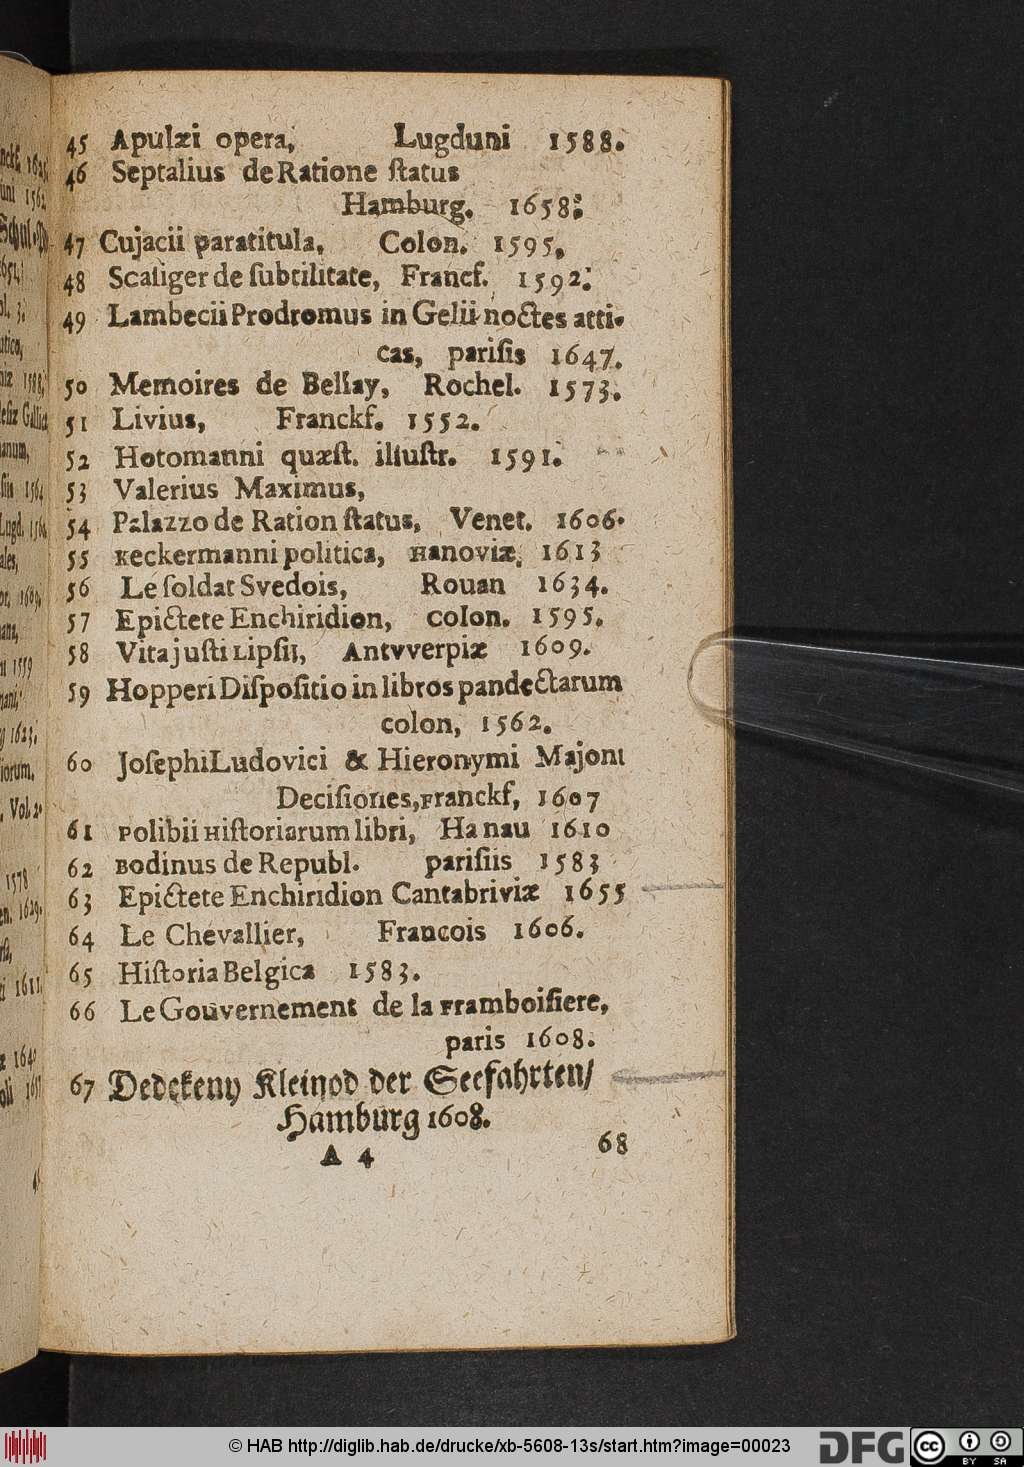 45 Apulæi opera, Lugduni 1588.
46 Septalius de Ratione ſtatus
Hamburg. 1658.
47 Cujacii paratitula, Colon. 1595.
48 Scaliger de ſubtilitate, Francf. 1592.
49 Lambecii Prodromus in Gelii noctes atti-
cas, pariſis 1647.
50 Memoires de Bellay, Rochel. 1573.
51 Livius, Franckf. 1552.
52 Hotomanni quæſt. illuſtr. 1591.
53 Valerius Maximus,
54 Palazzo de Ration ſtatus, Venet. 1606.
55 Keckermanni politica, Hanoviæ, 1613
56 Le ſoldat Svedois, Rouan 1634.
57 Epictete Enchiridion, colon. 1595.
58 Vita juſti Lipſii, Antvverpiæ 1609.
59 Hopperi Diſpoſitio in libros pandectarum
colon, 1562.
60 Joſephi Ludovici & Hieronymi Majoni
Deciſiones, Franckf, 1607
61 Polibii Hiſtoriarum libri, Hanau 1610
62 Bodinus de Republ. pariſiis 1583
63 Epictete Enchiridion Cantabriviæ 1655
64 Le Chevallier, Francois 1606.
65 Hiſtoria Belgica 1583.
66 Le Gouvernement de la Framboiſiere,
paris 1608.
67 Dedekeny Kleinod der Seefahrten/
Hamburg 1608.
A 4 68
© HAB http://diglib.hab.de/drucke/xb-5608-13s/start.htm?image=00023
DFG cc BY SA